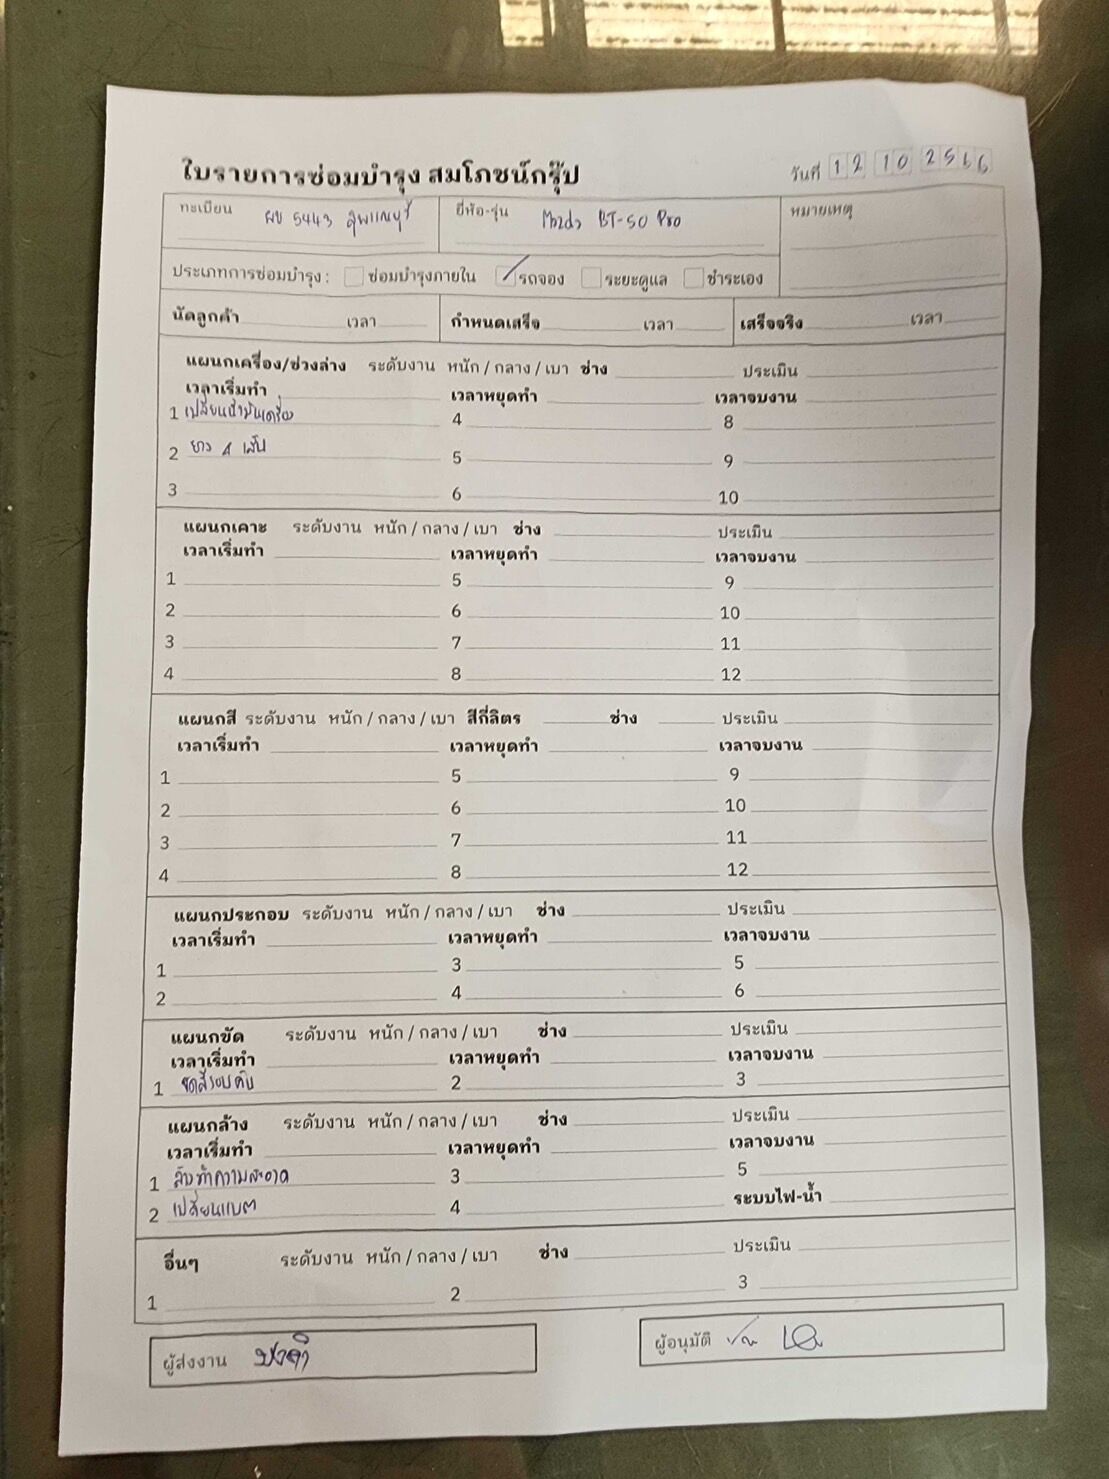 ใบรายการซ่อมบำรุง สมโภชน์กรุ๊ป
วันที่ 12 10 2566
ทะเบียน ผข 5443 สุพรรณบุรี ยี่ห้อ-รุ่น Mazda BT-50 Pro หมายเหตุ
ประเภทการซ่อมบำรุง : ซ่อมบำรุงภายใน รถจอง ระยะดูแล ชำระเอง
นัดลูกค้า เวลา กำหนดเสร็จ เวลา เสร็จจริง เวลา
แผนกเครื่อง/ช่วงล่าง ระดับงาน หนัก / กลาง / เบา ช่าง ประเมิน
เวลาเริ่มทำ เวลาหยุดทำ เวลาจบงาน
1 เปลี่ยนน้ำมันเครื่อง 4 8
2 ยาง 4 เส้น 5 9
3 6 10
แผนกเคาะ ระดับงาน หนัก / กลาง / เบา ช่าง ประเมิน
เวลาเริ่มทำ เวลาหยุดทำ เวลาจบงาน
1 5 9
2 6 10
3 7 11
4 8 12
แผนกสี ระดับงาน หนัก / กลาง / เบา สีกี่ลิตร ช่าง ประเมิน
เวลาเริ่มทำ เวลาหยุดทำ เวลาจบงาน
1 5 9
2 6 10
3 7 11
4 8 12
แผนกประกอบ ระดับงาน หนัก / กลาง / เบา ช่าง ประเมิน
เวลาเริ่มทำ เวลาหยุดทำ เวลาจบงาน
1 3 5
2 4 6
แผนกขัด ระดับงาน หนัก / กลาง / เบา ช่าง ประเมิน
เวลาเริ่มทำ เวลาหยุดทำ เวลาจบงาน
1 ขัดสีรอบคัน 2 3
แผนกล้าง ระดับงาน หนัก / กลาง / เบา ช่าง ประเมิน
เวลาเริ่มทำ เวลาหยุดทำ เวลาจบงาน
1 ล้างทำความสะอาด 3 5
2 เปลี่ยนแบต 4 ระบบไฟ-น้ำ
อื่นๆ ระดับงาน หนัก / กลาง / เบา ช่าง ประเมิน
1 2 3
ผู้ส่งงาน ผู้อนุมัติ